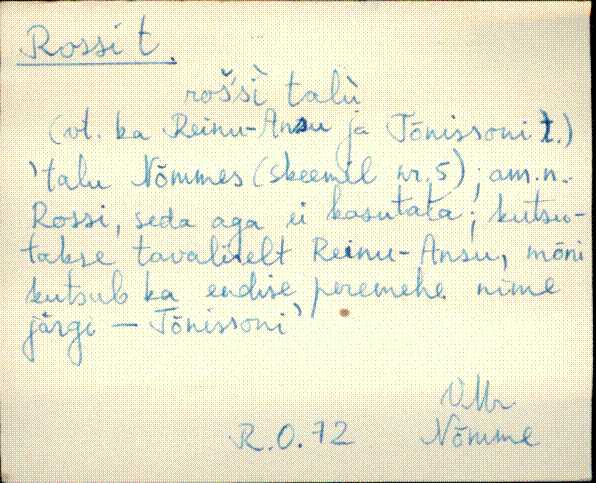 Rossi t.
rošsì talù
(vt. ka Reinu-Ansu ja Tõnissoni t.)
'talu Nõmmes (skeemil nr. 5); am. n.
Rossi, seda aga ei kasutata; kutsu-
takse tavaliselt Reinu-Ansu, mõni
kutsub ka endise peremehe nime
järgi — Tõnissoni'
VMr
R.O. 72 Nõmme